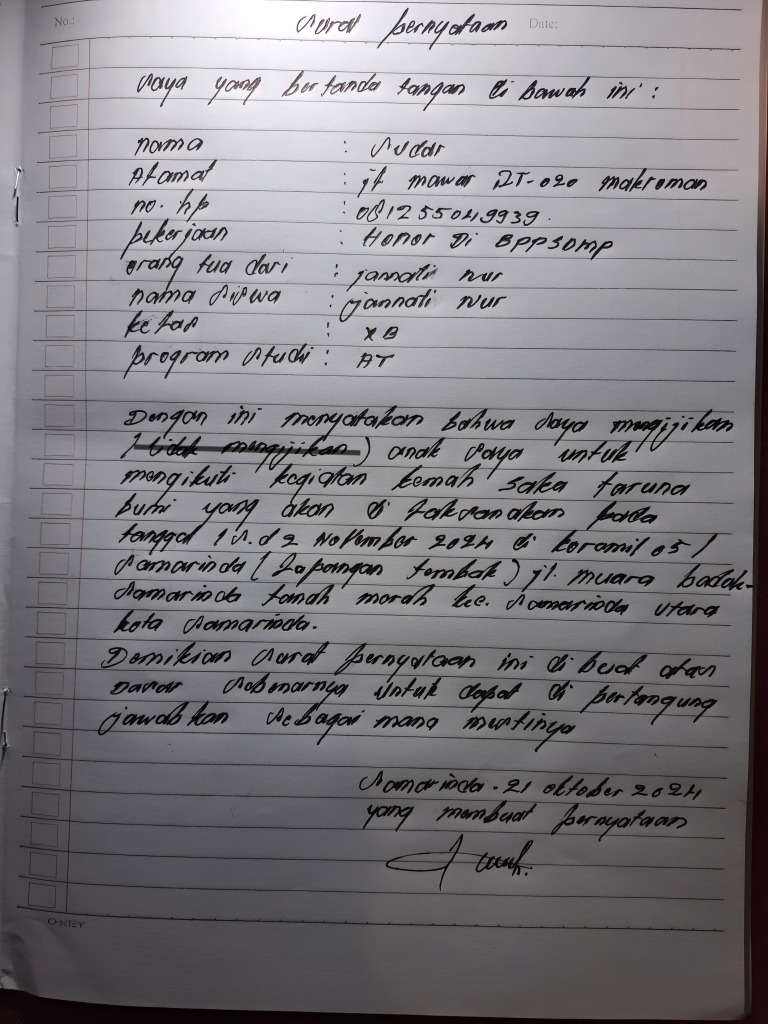 No.:
Date:
Surat pernyataan
Saya yang bertanda tangan di bawah ini :
nama : Sudar
Alamat : jl mawar RT-020 makroman
no. hp : 081255049939.
pekerjaan : Honor Di BPPSDMP
orang tua dari : jannati nur
nama siswa : jannati nur
kelas : XB
program studi : AT
Dengan ini menyatakan bahwa saya mengijikan
/ (tidak mengijikan) anak saya untuk
mengikuti kegiatan kemah saka taruna
bumi yang akan di laksanakan pada
tanggal 1 s.d 2 November 2024 di koramil 05 /
Samarinda (Lapangan tembak) jl. muara badak-
Samarinda tanah merah kec. Samarinda utara
kota Samarinda.
Demikian surat pernyataan ini di buat atas
dasar sebenarnya untuk dapat di pertangung
jawabkan sebagai mana mestinya
Samarinda . 21 oktober 2024
yang membuat pernyataan
OKEY